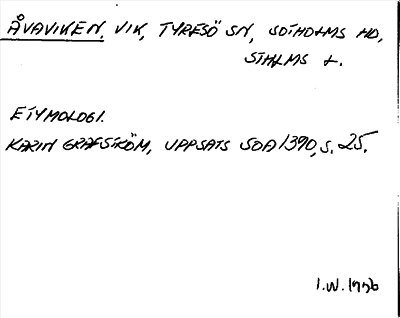 ÅVAVIKEN, VIK, TYRESÖ SN, SOTHOLMS HD,
STHLMS L.
ETYMOLOGI.
KARIN GRAFSTRÖM, UPPSATS SOA 1390, S. 25.
I.W. 1976